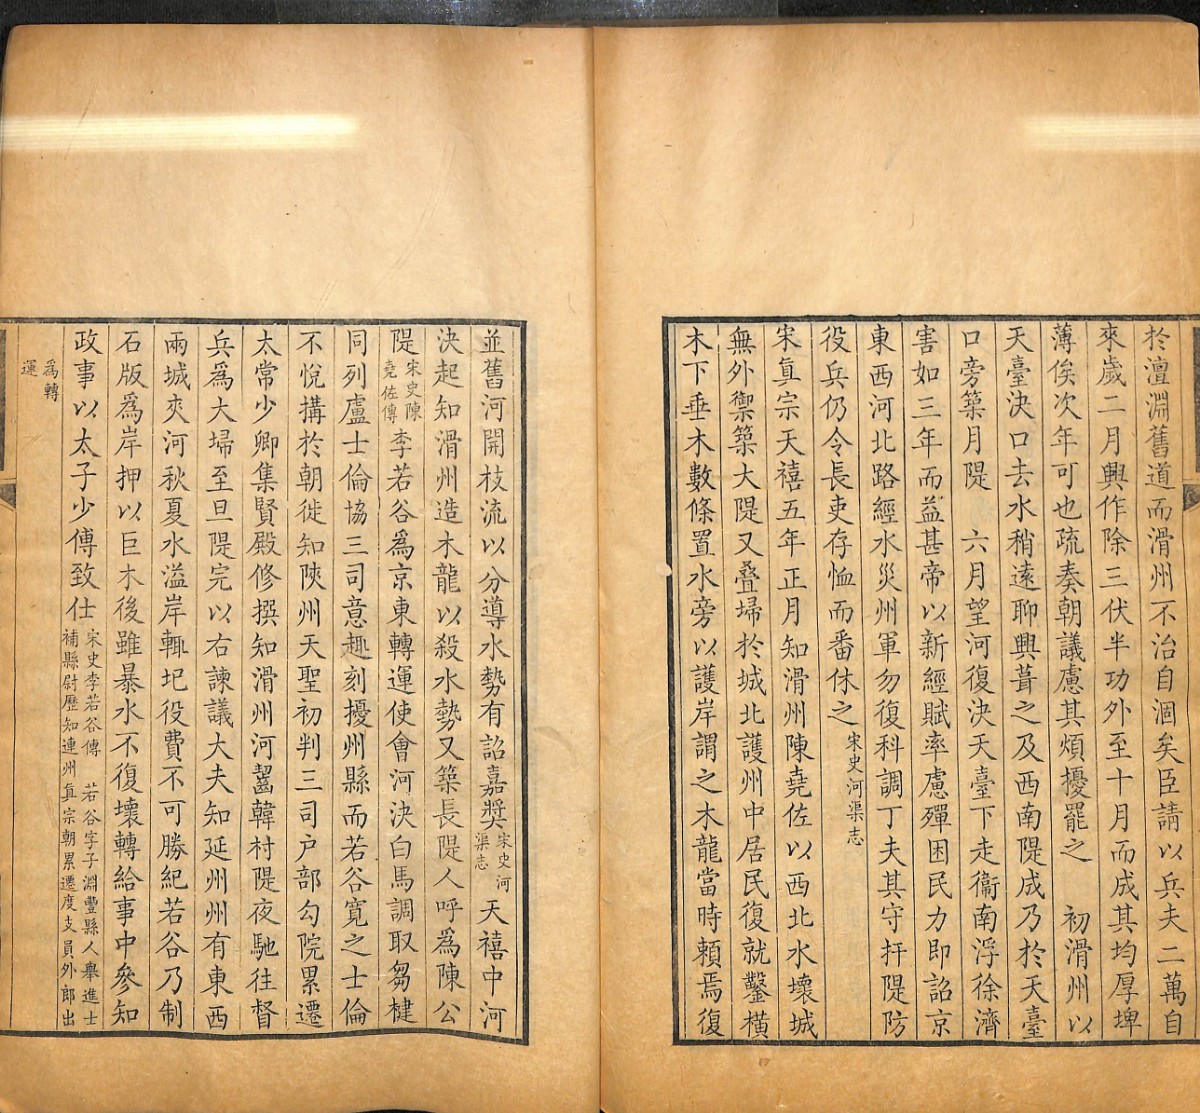 於澶淵舊道而滑州不治自涸矣臣請以兵夫二萬自
來歲二月興作除三伏半功外至十月而成其均厚埤
薄俟次年可也疏奏朝議慮其煩擾罷之　初滑州以
天臺決口去水稍遠聊興葺之及西南隄成乃於天臺
口旁築月隄　六月望河復決天臺下走衞南浮徐濟
害如三年而益甚帝以新經賦率慮殫困民力即詔京
東西河北路經水災州軍勿復科調丁夫其守扞隄防
役兵仍令長吏存恤而番休之宋史河渠志
宋真宗天禧五年正月知滑州陳堯佐以西北水壞城
無外禦築大隄又叠埽於城北護州中居民復就鑿橫
木下垂木數條置水旁以護岸謂之木龍當時賴焉復
並舊河開枝流以分導水勢有詔嘉奬宋史河渠志天禧中河
決起知滑州造木龍以殺水勢又築長隄人呼爲陳公
隄宋史陳堯佐傳李若谷爲京東轉運使會河決白馬調取芻楗
同列盧士倫協三司意趣刻擾州縣而若谷寛之士倫
不悅搆於朝徙知陝州天聖初判三司户部勾院累遷
太常少卿集賢殿修撰知滑州河齧韓村隄夜馳往督
兵爲大埽至旦隄完以右諫議大夫知延州州有東西
兩城夾河秋夏水溢岸輒圮役費不可勝紀若谷乃制
石版爲岸押以巨木後雖暴水不復壞轉給事中參知
政事以太子少傅致仕宋史李若谷傳　若谷字子淵豐縣人舉進士補縣尉歷知連州真宗朝累遷度支員外郎出
爲轉運